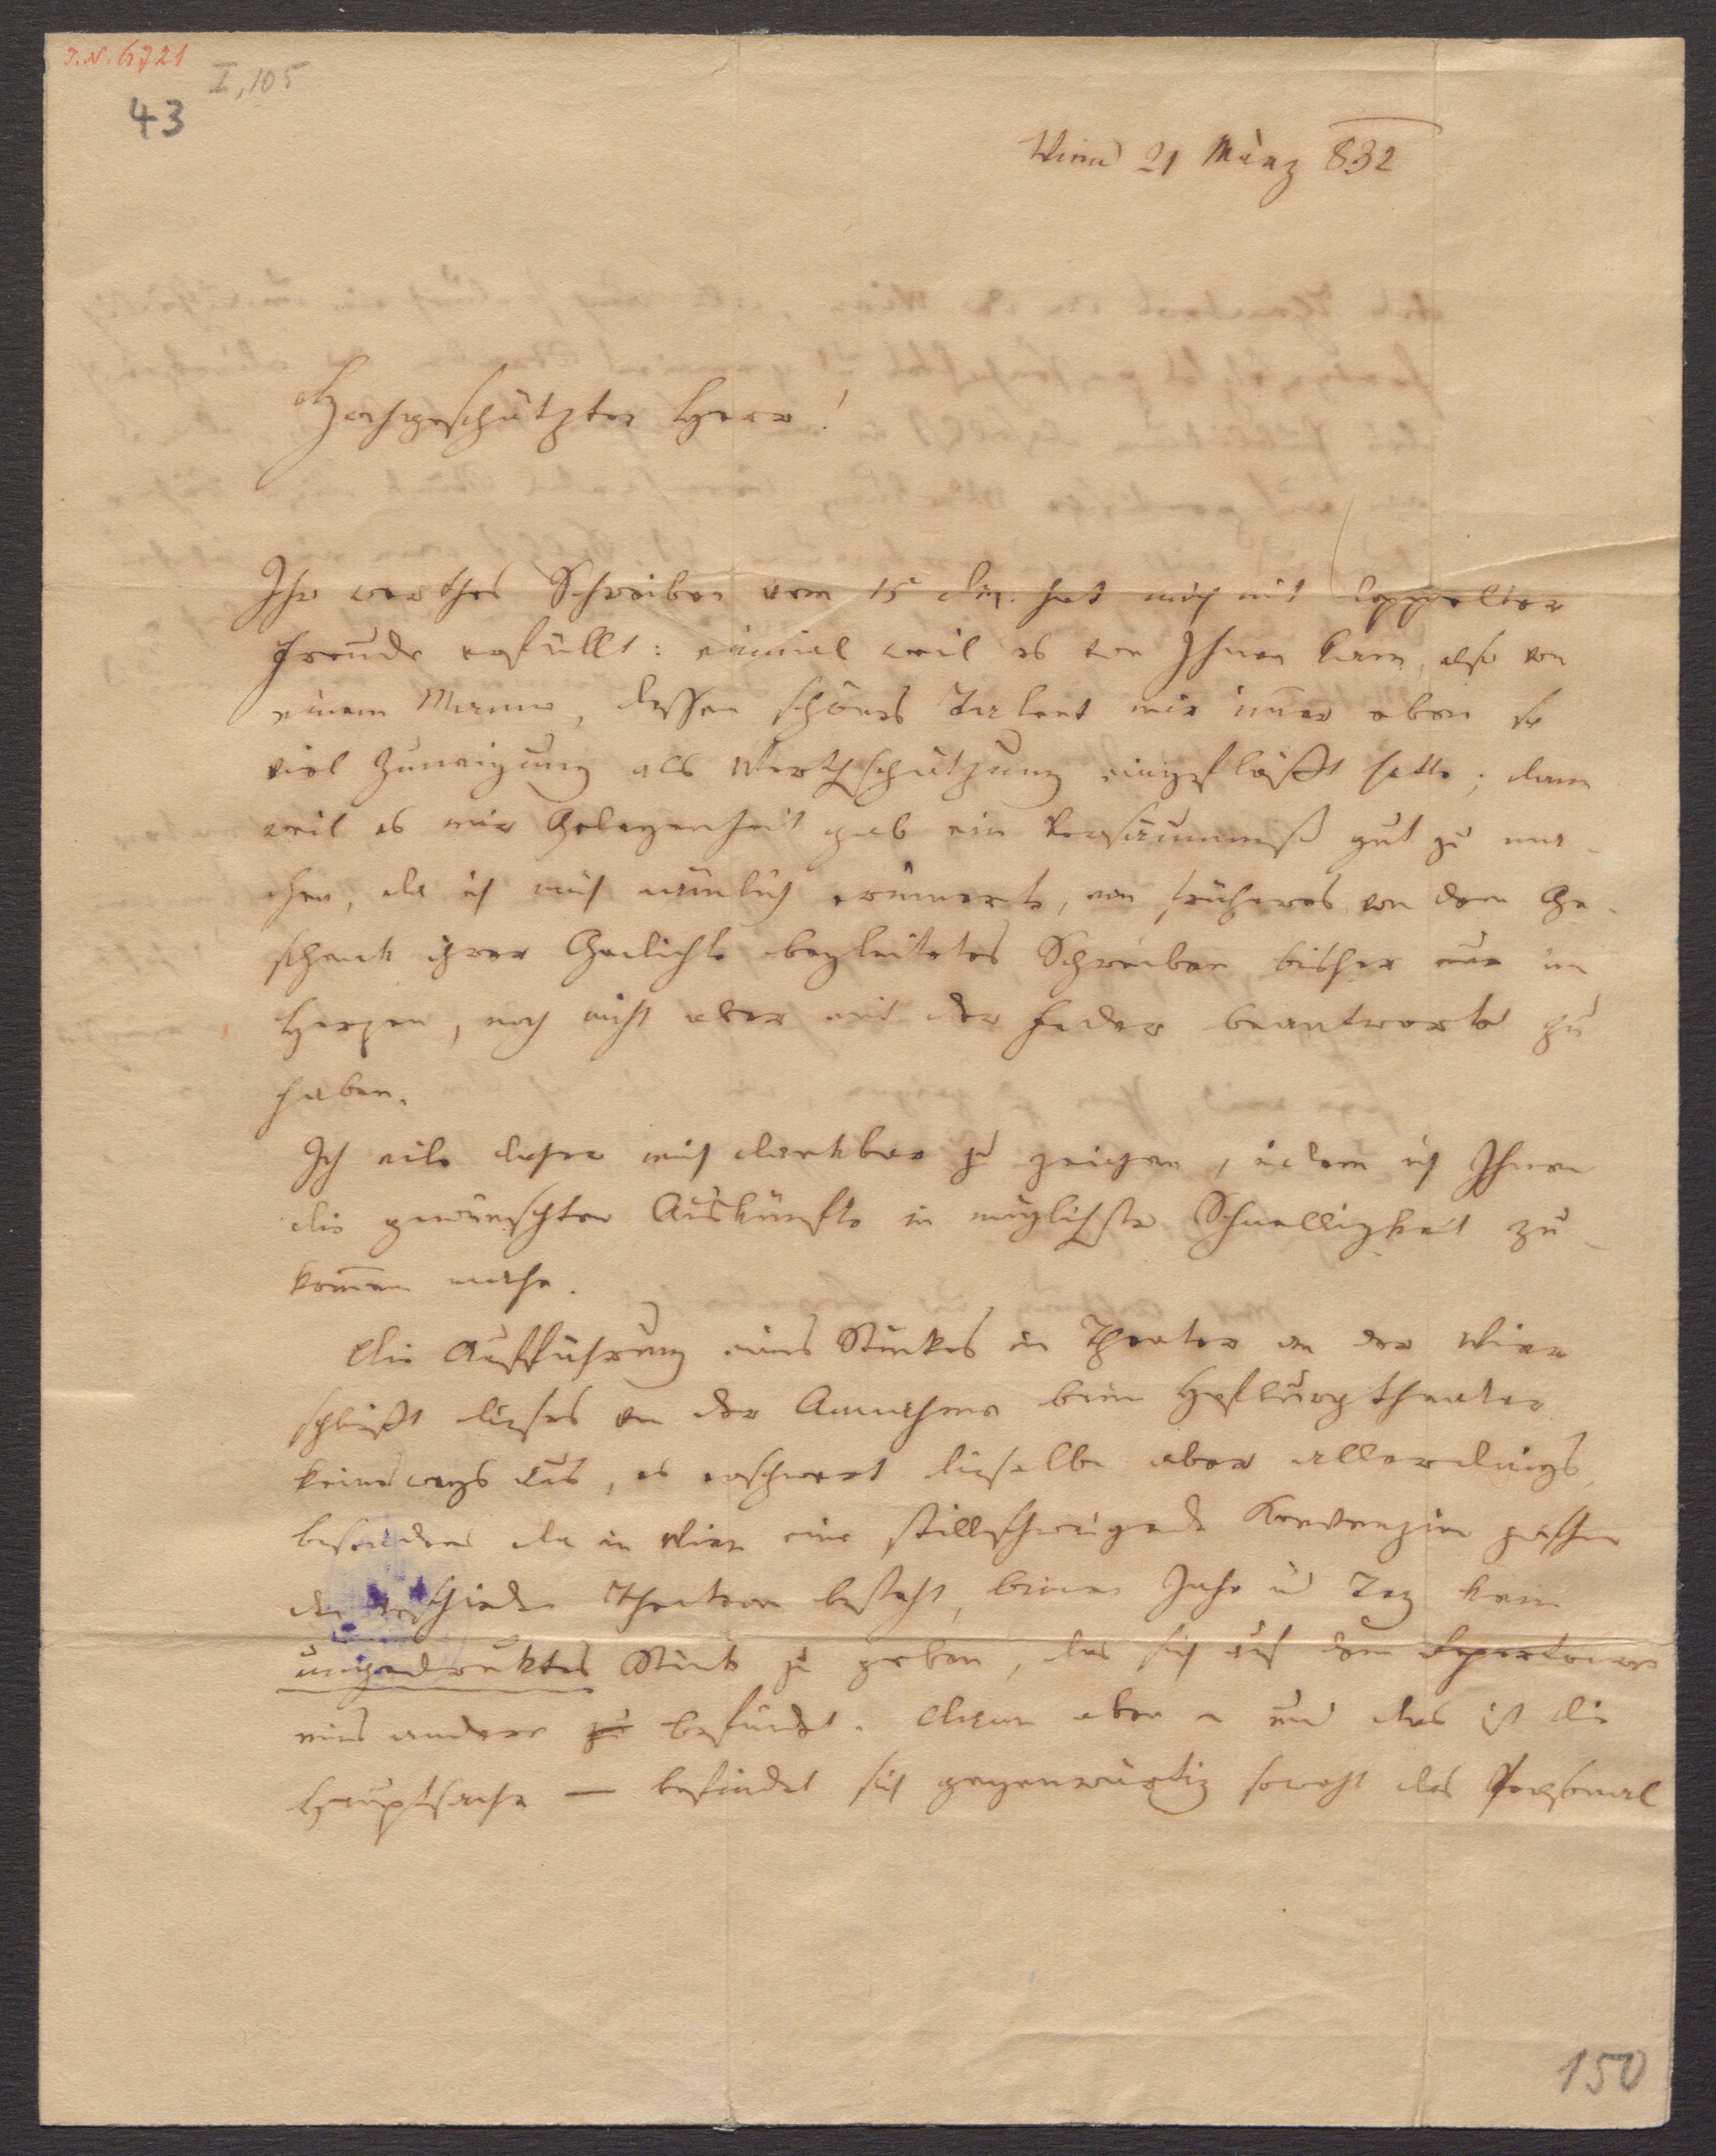 I.N. 6721
I, 105
43
Wien 21 März 832
Hochgeschätzter Herr!
Ihr werthes Schreiben vom 15 dM. hat mich mit doppelter
Freude erfüllt: einmal weil es von Ihnen kam, also von
einem Manne, dessen schönes Talent mir im̅er eben so
viel Zuneigung als Werthschätzung eingeflößt hatte; dann
weil es mir Gelegenheit gab ein Versäumniß gut zu ma-
chen, da ich mich nämlich erinnerte, ein früheres von dem Ge-
schenk ihrer Gedichte begleitetes Schreiben, bisher nur im
Herzen, noch nicht aber mit der Feder beantwortet zu
haben.
Ich eile daher mich dankbar zu zeigen, indem ich Ihnen
die gewünschten Auskünfte in möglichster Schnelligkeit zu-
kom̅en mache.
Die Aufführung eines Stückes im Theater an der Wien
schließt dieses von der Annahme beim Hofburgtheater
keineswegs aus, es erschwert dieselbe aber allerdings,
besonders da in Wien eine stillschweigende Konvenzion zwischen
den verschieden Theatern besteht, binnen Jahr u Tag kein
ungedruktes Stück zu geben, das sich auf dem Repertoire
eines andern zu befindet. Dann aber – und das ist die
Hauptsache — befindet sich gegenwärtig sowohl das Personal
150